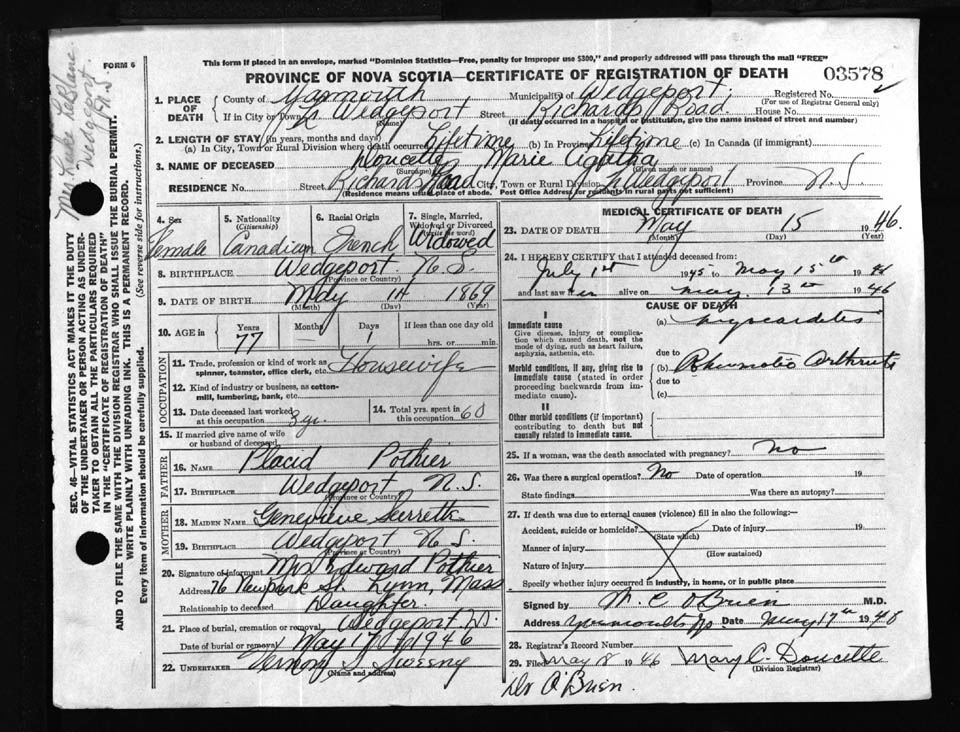 This form if placed in an envelope, marked "Dominion Statistics—Free, penalty for improper use $300," and properly addressed will pass through the mail "FREE"
FORM 6
PROVINCE OF NOVA SCOTIA—CERTIFICATE OF REGISTRATION OF DEATH
03578
1. PLACE OF DEATH County of Yarmouth Municipality of Wedgeport; Registered No.
(For use of Registrar General only)
If in City or Town Wedgeport Street Richards Road House No.
(Name) (If death occurred in a hospital or institution, give the name instead of street and number)
2. LENGTH OF STAY (in years, months and days)
(a) In City, Town or Rural Division where death occurred Lifetime (b) in Province Lifetime (c) In Canada (if immigrant)
3. NAME OF DECEASED Doucette Marie Agatha
(Surname) (Given name or names)
RESIDENCE No. Street Richards Road City, Town or Rural Division Wedgeport Province N.S.
(Residence means usual place of abode. Post Office Address for residents in rural parts not sufficient)
4. Sex Female
5. Nationality (Citizenship) Canadian
6. Racial Origin French
7. Single, Married, Widowed or Divorced (write the word) Widowed
8. BIRTHPLACE Wedgeport. N.S.
(Province or Country)
9. DATE OF BIRTH May 14 1869
(Month) (Day) (Year)
10. AGE in Years 77 Months Days 1 If less than one day old
hrs. or min.
OCCUPATION
11. Trade, profession or kind of work as spinner, teamster, office clerk, etc. Housewife
12. Kind of industry or business, as cotton-mill, lumbering, bank, etc.
13. Date deceased last worked at this occupation 3 yr.
14. Total yrs. spent in this occupation 60
15. If married give name of wife or husband of deceased
FATHER
16. NAME Placid Pothier
17. BIRTHPLACE Wedgeport N.S.
(Province or Country)
MOTHER
18. MAIDEN NAME Genevieve Surrette
19. BIRTHPLACE Wedgeport N S
(Province or Country)
20. Signature of informant Mrs Edward Pothier
Address 76 Newpark St. Lynn, Mass
Relationship to deceased Daughter.
21. Place of burial, cremation or removal Wedgeport N.S.
Date of burial or removal May 17 1946
22. UNDERTAKER Vernon S Sweeny
(Name and address)
MEDICAL CERTIFICATE OF DEATH
23. DATE OF DEATH May 15 1946.
(Month) (Day) (Year)
24. I HEREBY CERTIFY that I attended deceased from:
July 1st 1945 to May 15th 1946
and last saw her alive on May. 13th 1946
CAUSE OF DEATH
I
Immediate cause
Give disease, injury or complication which caused death, not the mode of dying, such as heart failure, asphyxia, asthenia, etc.
(a) Myocarditis
due to
Morbid conditions, if any, giving rise to immediate cause (stated in order proceeding backwards from immediate cause).
(b) Rheumatic Arthritis
due to
(c)
II
Other morbid conditions (if important) contributing to death but not causally related to immediate cause.
25. If a woman, was the death associated with pregnancy? No
26. Was there a surgical operation? No Date of operation 19
State findings Was there an autopsy?
27. If death was due to external causes (violence) fill in also the following:—
Accident, suicide or homicide? Date of injury 19
(State which)
Manner of injury
(How sustained)
Nature of injury
Specify whether injury occurred in industry, in home, or in public place
Signed by M. C O'Brien M.D.
Address Yarmouth NS Date May 17th 1946
28. Registrar's Record Number
29. Filed May 18 1946 Mary C. Doucette
(Division Registrar)
Dr O'Brien.
Mrs Luke LeBlanc
Wedgeport
N.S.
SEC. 46—VITAL STATISTICS ACT MAKES IT THE DUTY
OF THE UNDERTAKER OR PERSON ACTING AS UNDER-
TAKER TO OBTAIN ALL THE PARTICULARS REQUIRED
IN THE "CERTIFICATE OF REGISTRATION OF DEATH"
AND TO FILE THE SAME WITH THE DIVISION REGISTRAR WHO SHALL ISSUE THE BURIAL PERMIT.
WRITE PLAINLY WITH UNFADING INK. THIS IS A PERMANENT RECORD.
Every item of information should be carefully supplied. (See reverse side for instructions.)